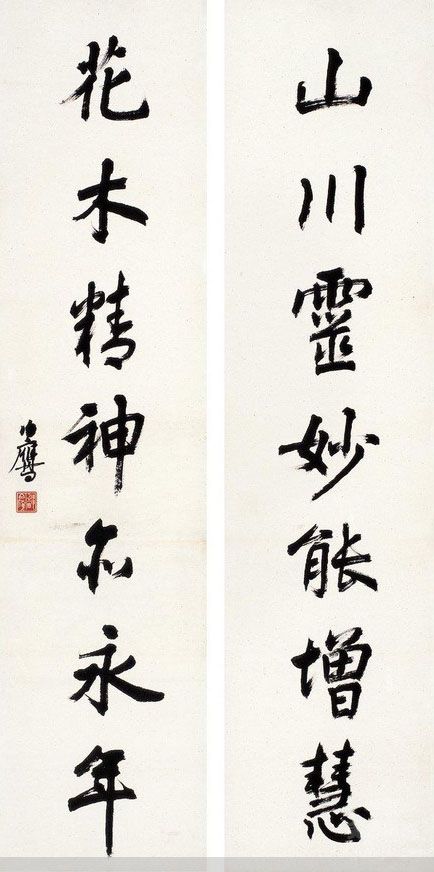 山川靈妙能增慧
花木精神亦永年
鷹